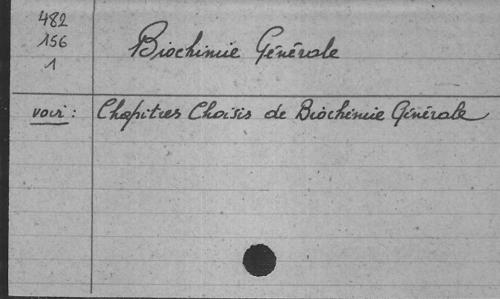 482
156
1
Biochimie Générale
voir : Chapitres Choisis de Biochimie Générale